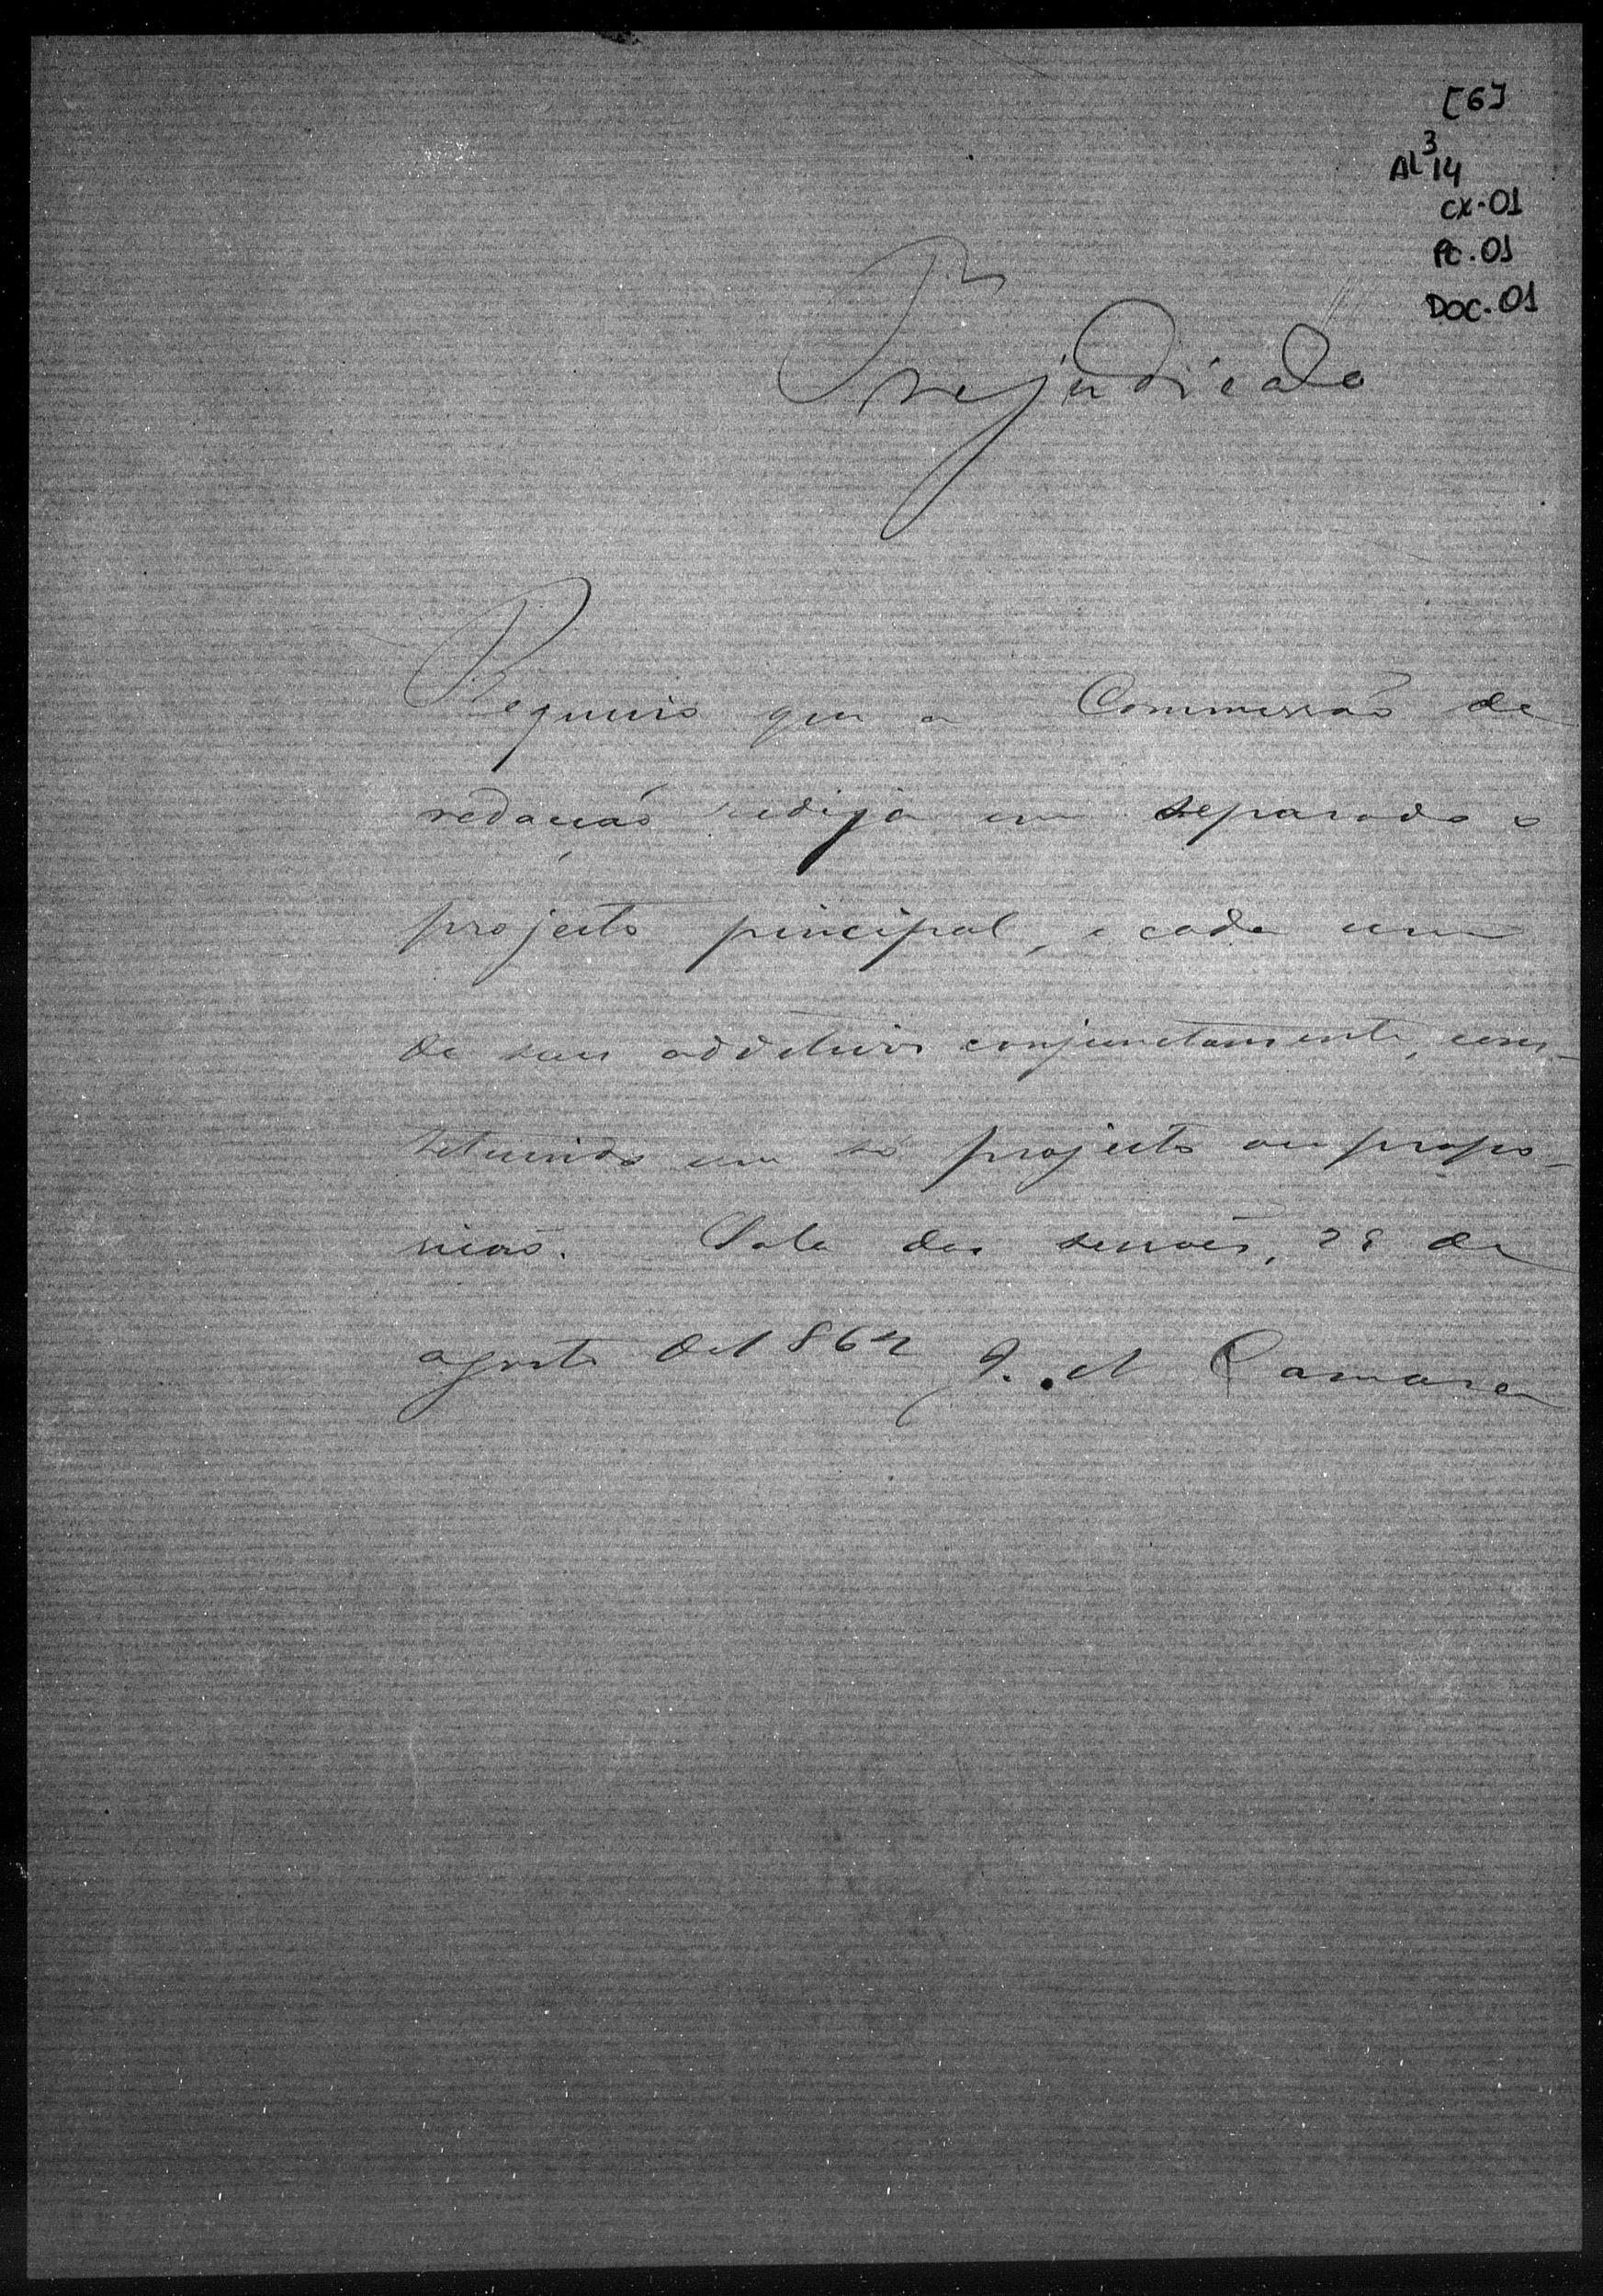 [6]
AL 3 14
CX-01
PC.01
DOC.01
Prejudicado
Requeiro que a Commissão de
redacção redija em separado o
projecto pincipal, e cada um
de seus additivos conjunctamente, cons-
tituindo um só projecto ou propo-
sicão. Sala das sessões, 28 de
agosto de 1862 J. M Camara